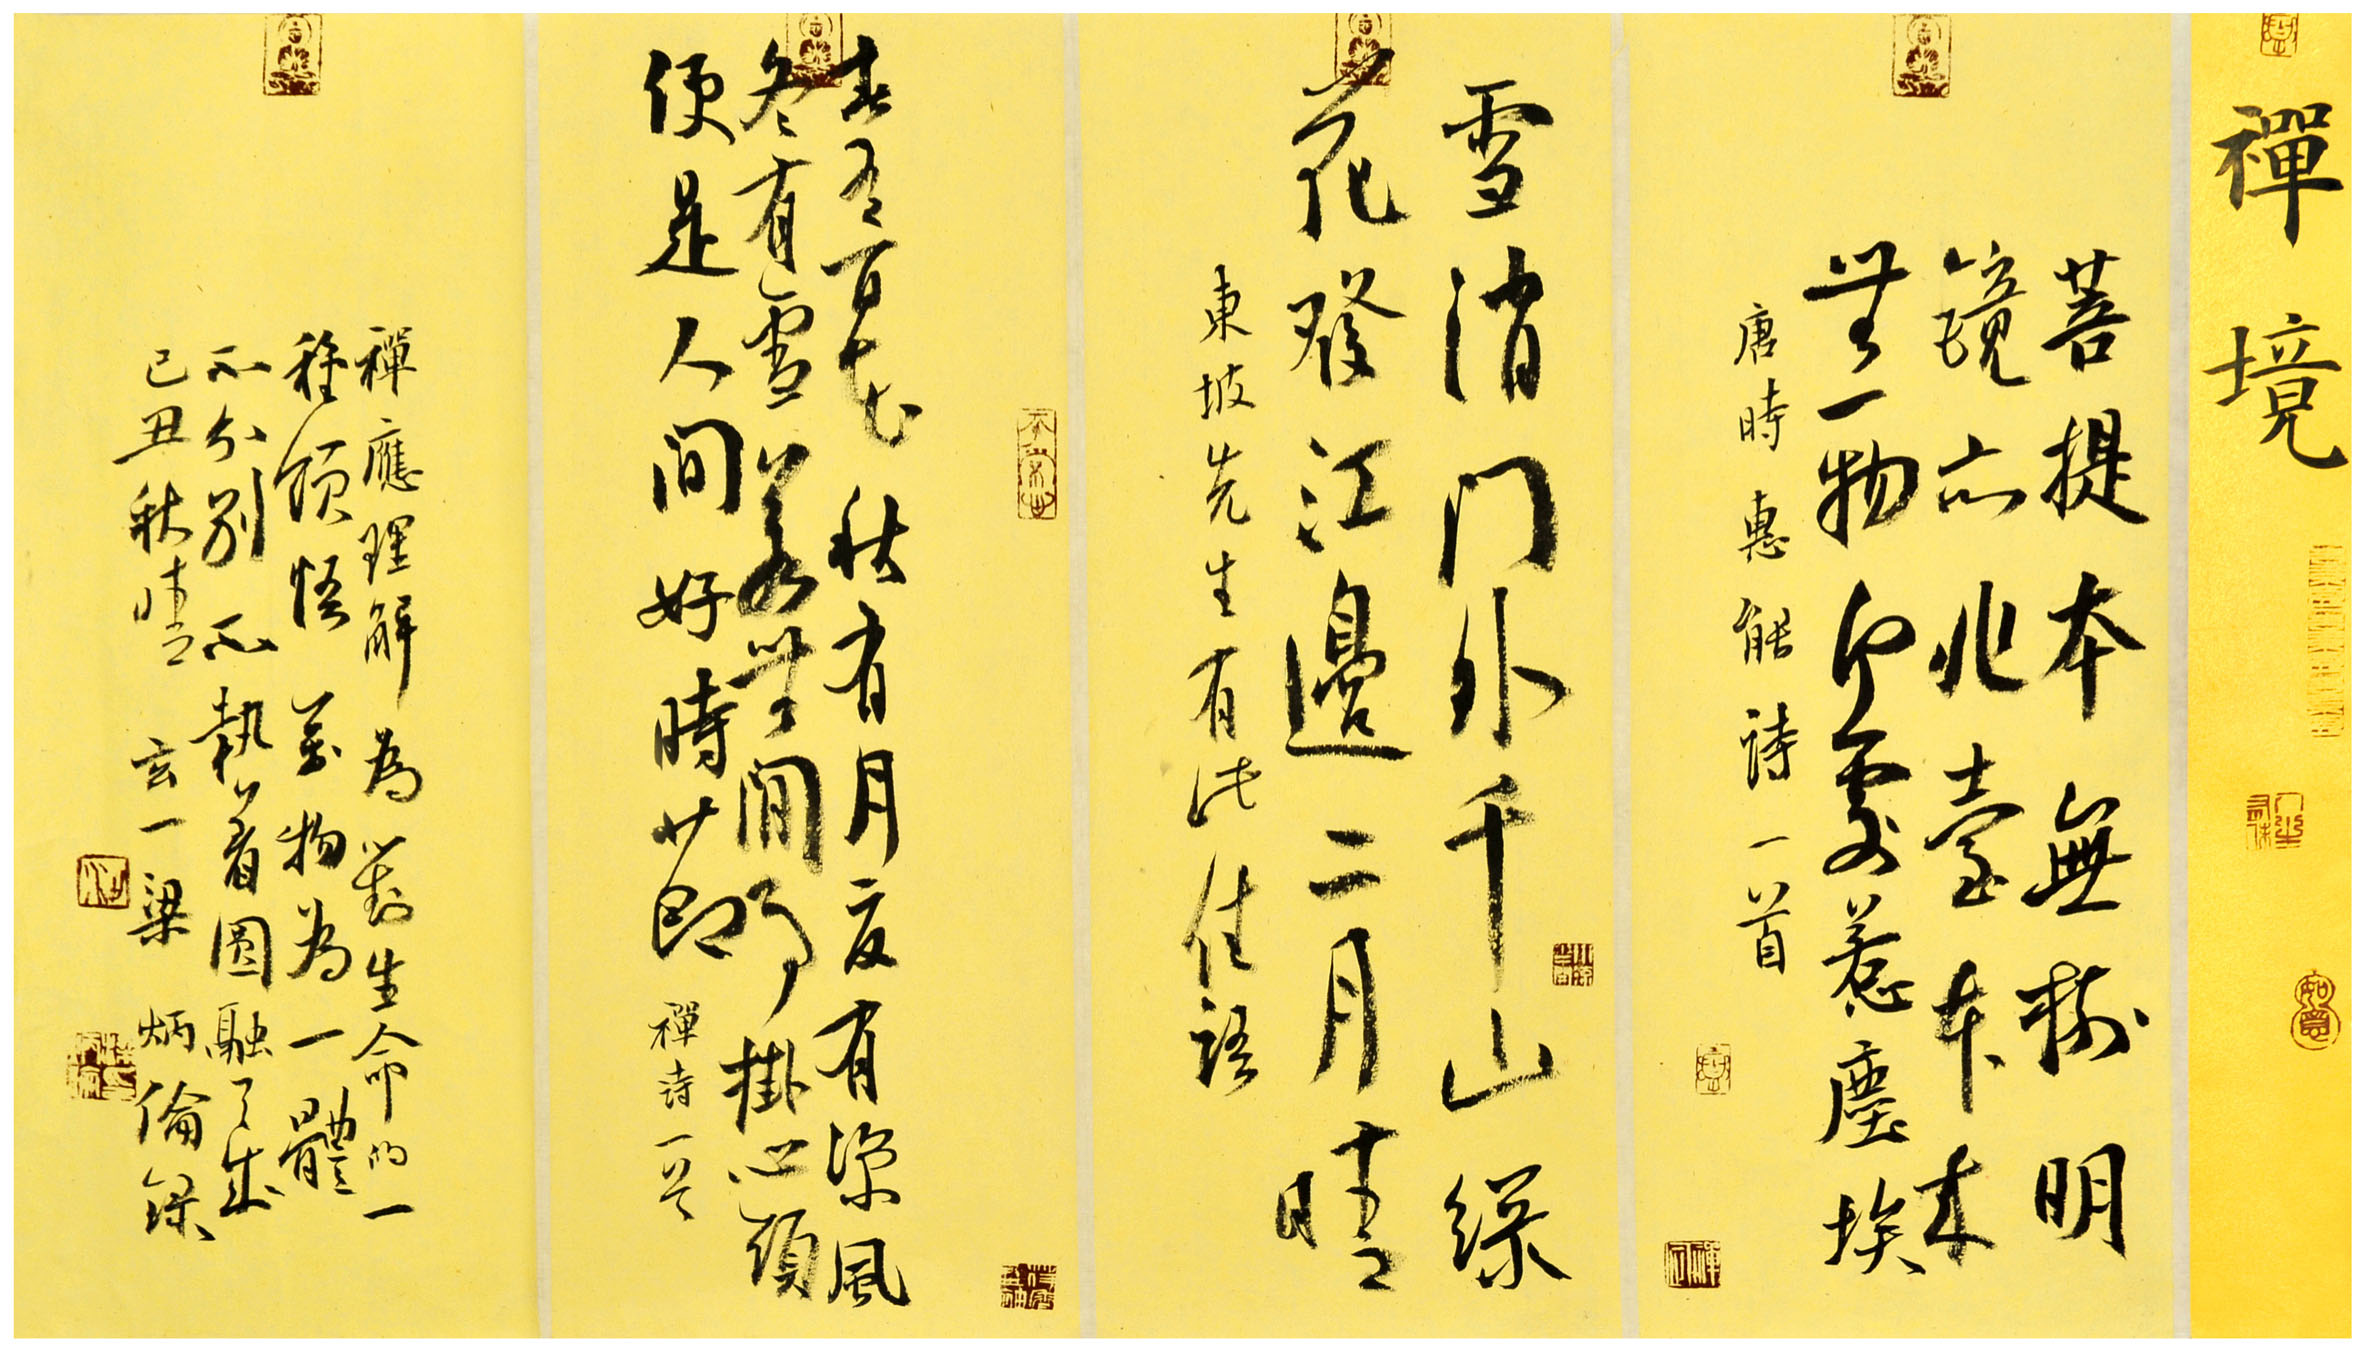 禪境
菩提本無樹明
鏡亦非臺本來
無一物何處惹塵埃
唐時惠能詩一首
雪消門外千山綠
花發江邊二月晴
東坡先生有此佳語
春有百花秋有月夏有涼風
冬有雪若無閒事掛心頭
便是人間好時節
禪詩一首
禪應理解為對生命的一
種領悟萬物為一體
不分別不執着圓融了生
己丑秋晴玄一梁炳倫錄
如意